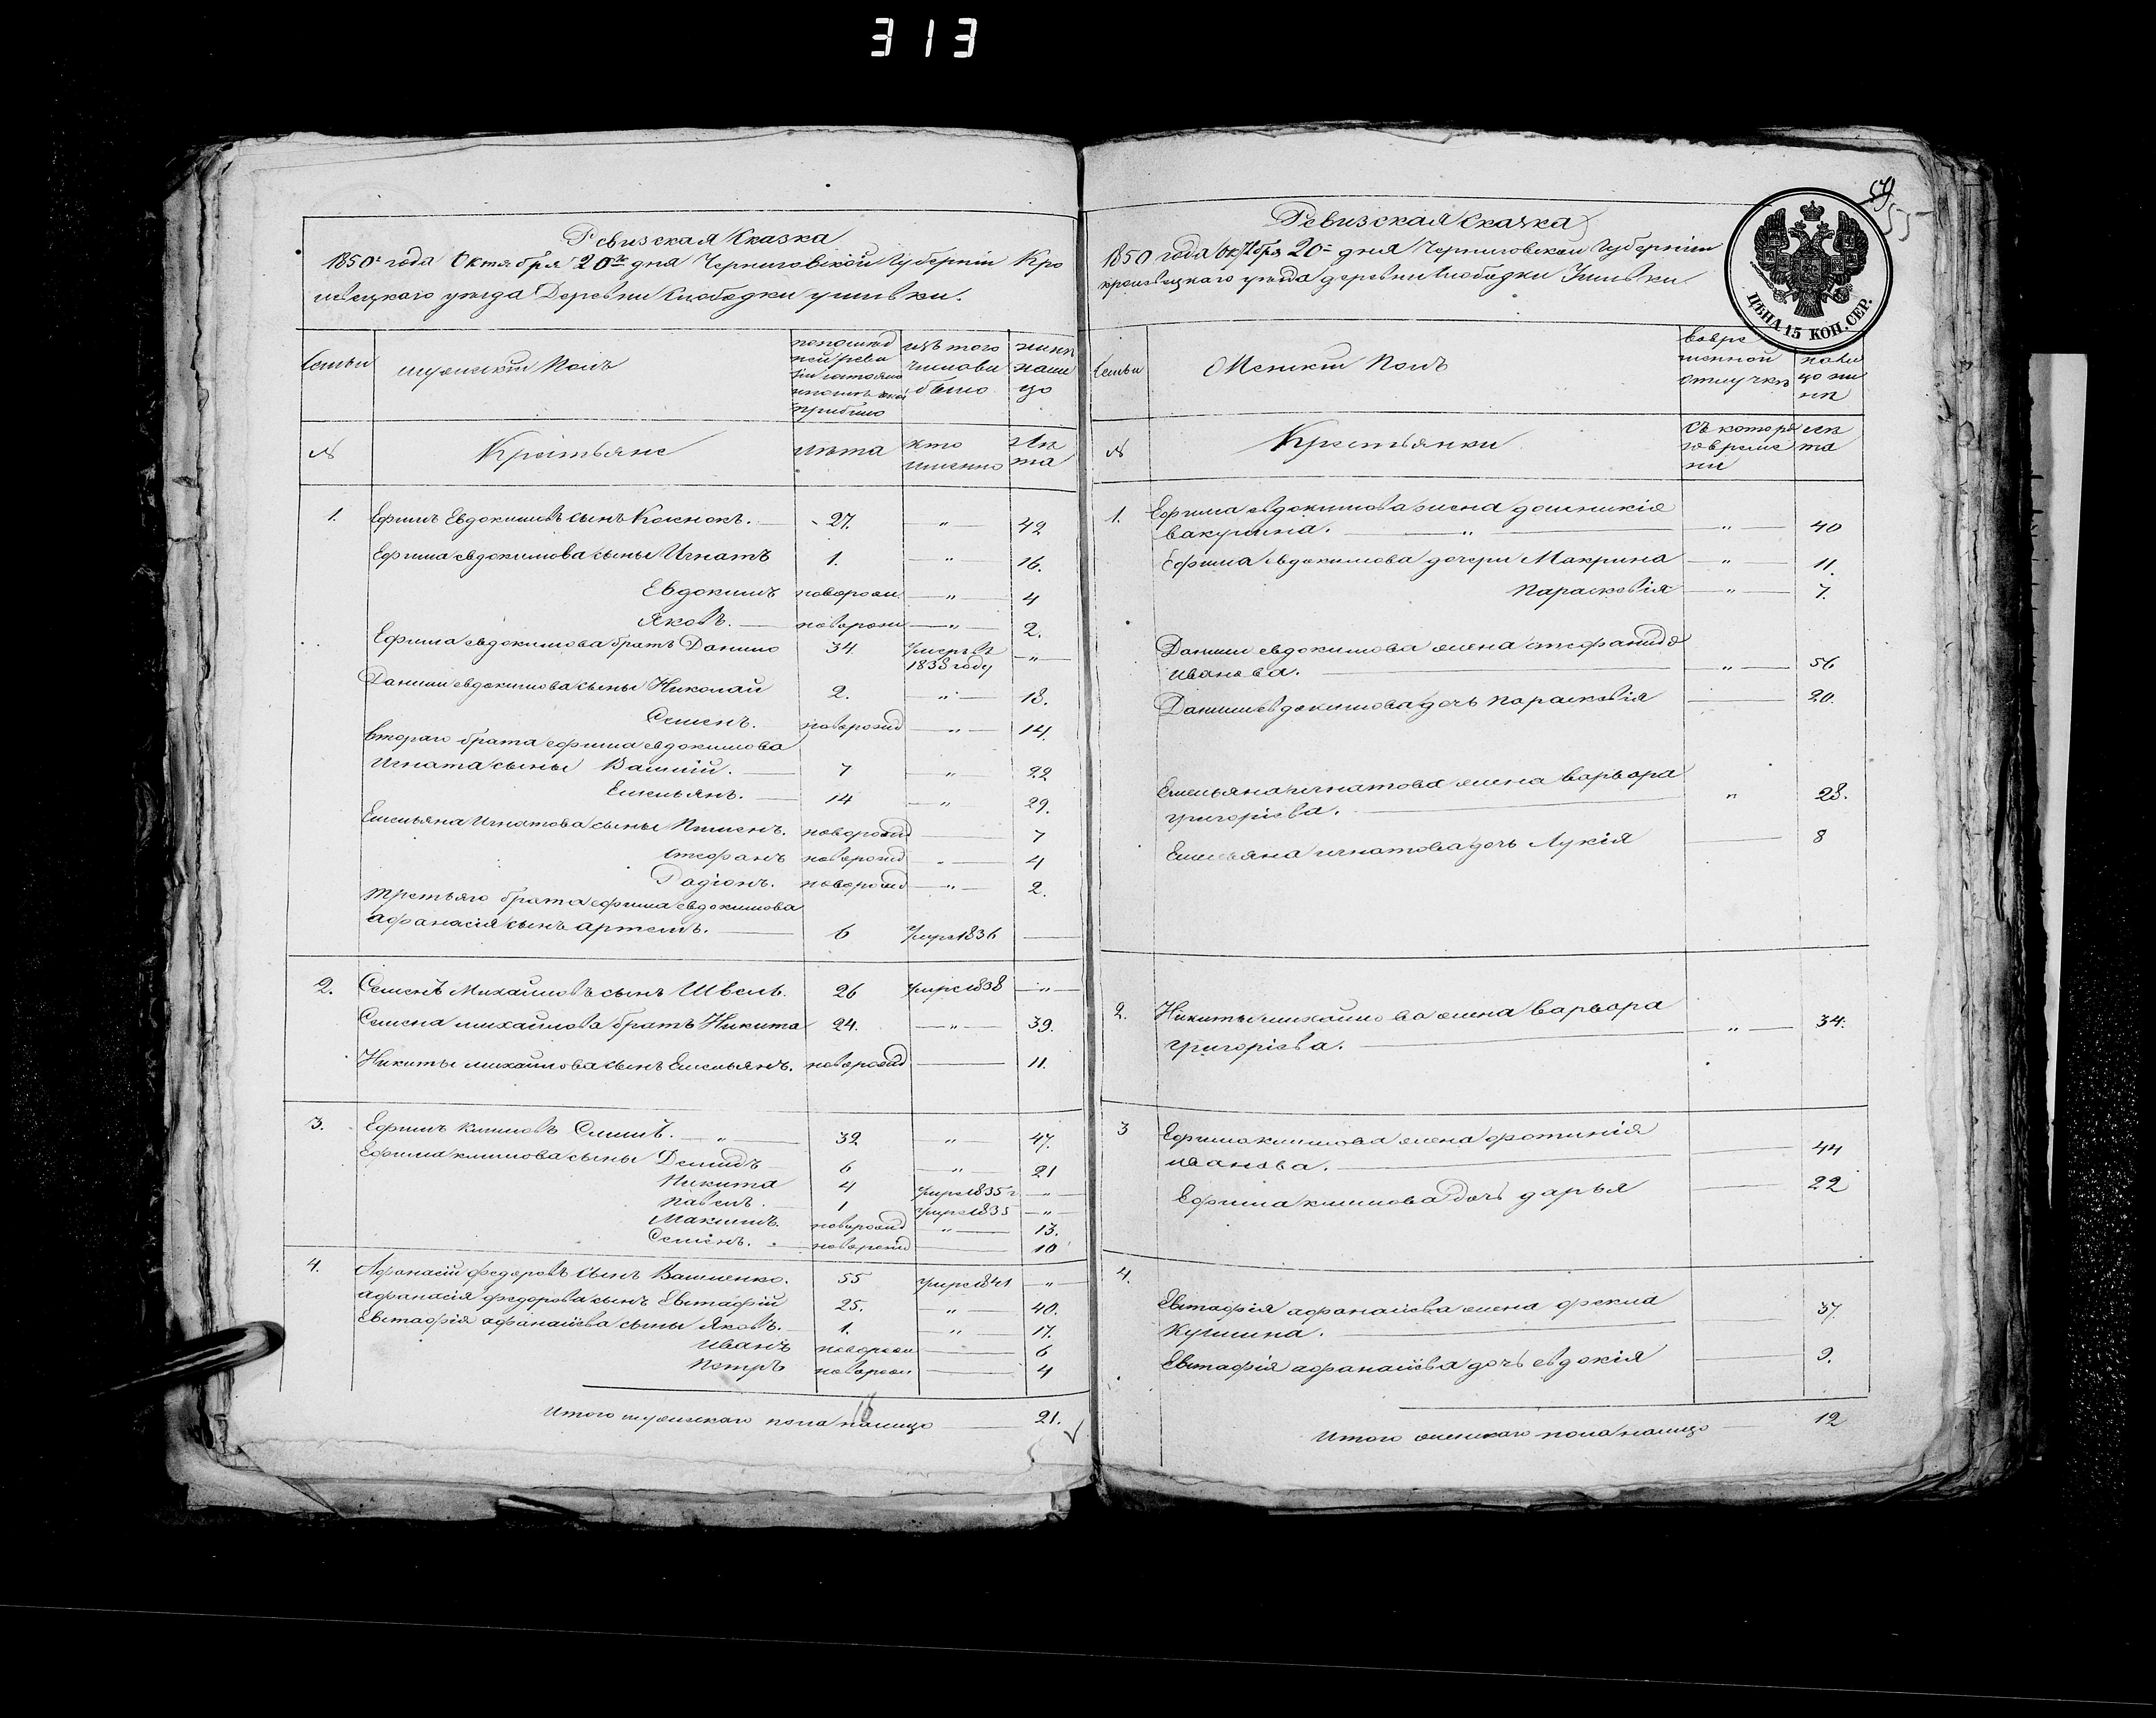 313
Ревизская Сказка
1850 года Октября 20го дня Черниговской Губерніи Кро
левецкаго уезда Деревни Слободки
Семьи
мужескій Полъ
изъ того
числа вы
было
ныне
нали
цо
№
Крестьяне
лета
кто
именно
Ле
та
1. Ефимъ Евдокимовъ сынъ 27. " 42
Ефима евдокимова сыны Игнатъ 1. " 16.
Евдокимъ новорож " 4
Яковъ. новорож " 2.
Ефима евдокимова братъ Данило 34. умеръ въ
1838 году "
Данили евдокимова сыны Николай 2. " 18.
Семенъ. новорожд " 14.
втораго брата ефима евдокимова
Игната сыны Василій. 7 " 22
Емельянъ. 14 " 29.
Емельяна Игнатова сыны Пименъ. новорожд 7
стефанъ новорожд " 4
Радіонъ. новорожд " 2.
третьяго брата ефима евдокимова
афанасія сынъ артемъ. 6 Умре 1836
2. Семенъ Михайловъ сынъ Швель. 26 умре 1838 "
Семена михайлова братъ Никита 24. " 39.
Никиты михайлова сынъ Емельянъ. новорожд 11.
3. Ефимъ Климовъ " 32. " 47.
Ефима климова сыны Демидъ 6 " 21
Никита 4 умре 1835 г "
Павелъ. 1 умре 1835 "
Максимъ новорожд " 13.
Семенъ. новорожд 10
4. Афанасій федоровъ сынъ Василенко. 55 умре 1841 "
афанасія федорова сынъ Евстафій 25. " 40.
Евстафія афанасіева сыны Яковъ. 1. " 17.
Иванъ новорож 6
Петръ новорож 4
Итого мужескаго пола налицо 21.
Ревизская Скаска
1850 года октября 20 дня Черниговской Губерніи
кролевецкаго уезда деревни слободки
ЦѢНА 15 КОП. СЕР.
Семьи
Женскій Полъ
вовре
менной
отлучке
нали
цо ны
не
№
Крестьянки
съ котора
го време
ни
ле
та
1. Ефима евдокимова жена домникія
вакулина. " " 40
Ефима евдокимова дочери Макрина " 11.
Параскевія " 7.
Данили евдокимова жена стефанида
иванова. " 56
Данили евдокимова дочь параскевія 20.
Емельяна игнатова жена варвара
григоріева. " 28.
Емельяна игнатова дочь Лукія 8
2. Никиты михайлова жена варвара
григоріева. " 34.
3 Ефима климова жена фотинія
иванова. 44
Ефима климова дочь дарья 22
4. Евстафія афанасіева жена фекла
37.
Евстафія афанасіева дочь евдокія 9.
Итого женскаго пола налицо 12